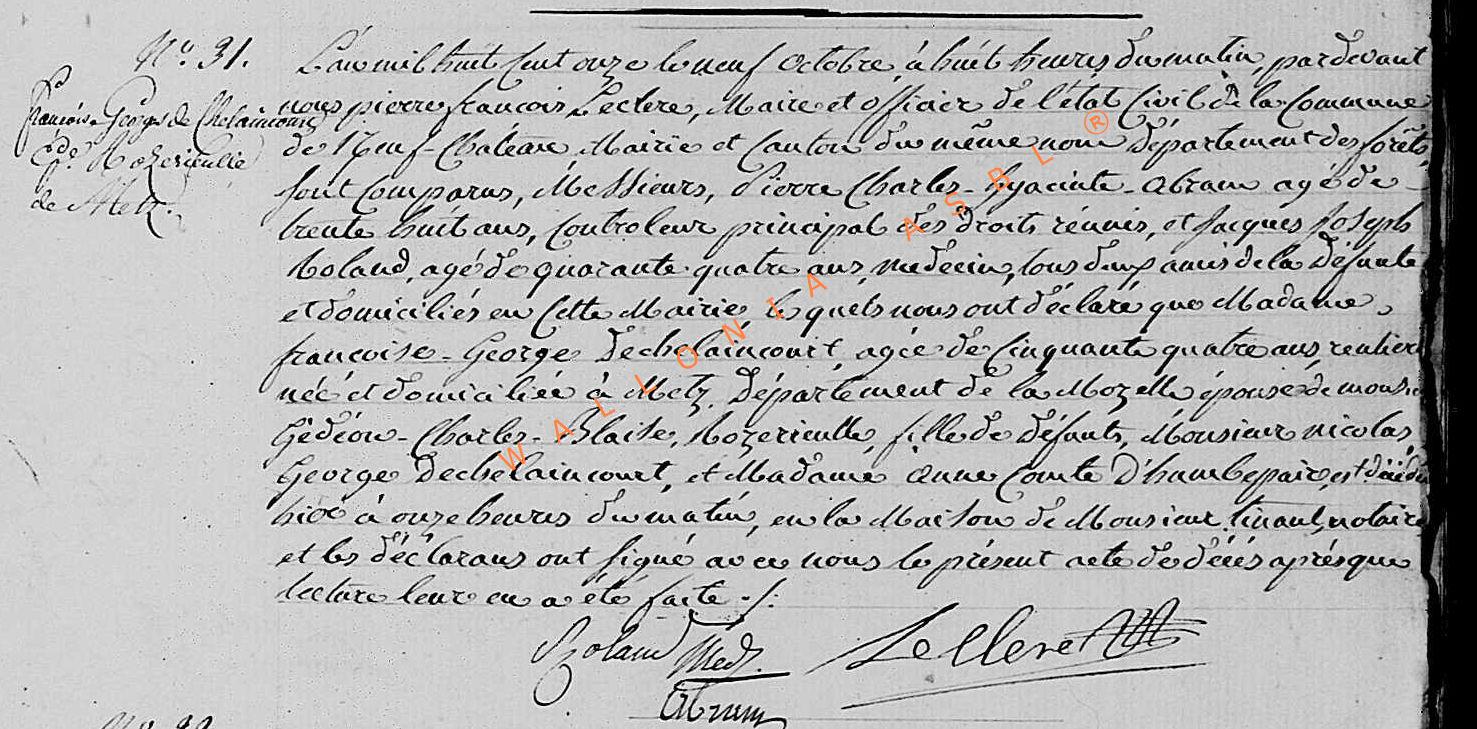 N.º 31.
françoise Georges de Chelaincourt
de Rozerieulle
de Metz.
L'an mil huit cent onze le neuf octobre, à huit heures du matin, pardevant
nous pierre françois Leclerc, Maire et officier de l'état Civil de la Commune
de Neuf-Château Mairie et Canton du même nom département des forêts,
sont Comparus, Messieurs, Pierre Charles-hyacinte-Abram agé de
trente huit ans, Controleur principal des droits réunis, et Jacques Joseph
Roland, agé de quarante quatre ans, médecin, tous deux amis de la défunte
et domiciliés en Cette Mairie, lesquels nous ont déclaré que Madame
françoise-George Dechelaincourt, agée de Cinquante quatre ans, rentiere
née et domiciliée à Metz, Département de la Mozelle épouse de monsieur
Gédéon-Charles-Blaise, Rozerieulle, fille de défunts, Monsieur nicolas,
George Dechelaincourt, et Madame anne Comte D'humbepaire, est décédée
hier à onze heures du matin, en la Maison de Monsieur tinant, notaire
et les déclarans ont signé avec nous le présent acte de décès après que
lecture leur en a été faite ./.
Roland Med. Leclerc
Abram
WALLONIA ASBL ®